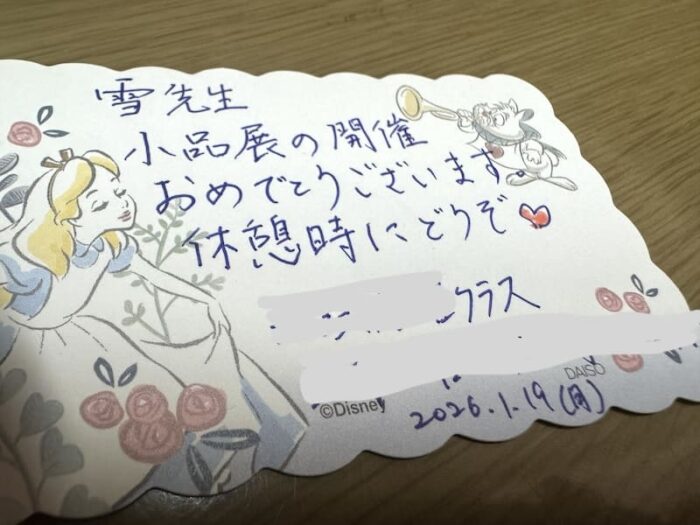 雪先生
小品展の開催
おめでとうございます。
休憩時にどうぞ
クラス
©Disney
DAISO
2026.1.19(月)